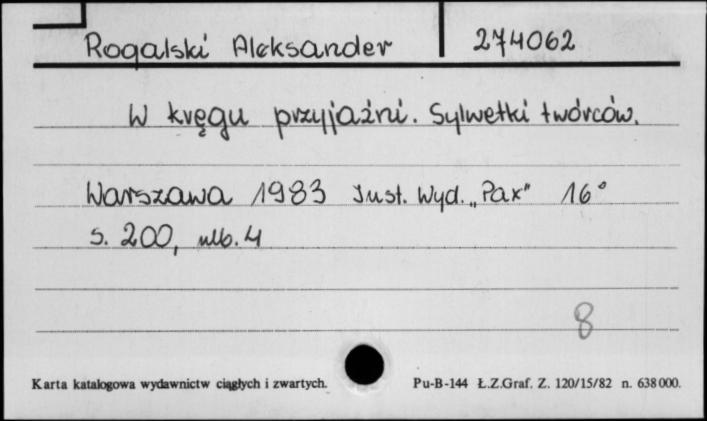 Rogalski Aleksander 274062
W kręgu przyjaźni. Sylwetki twórców.
Warszawa 1983 Inst. Wyd. „Pax" 16°
s. 200, nlb. 4
8
Karta katalogowa wydawnictw ciągłych i zwartych. Pu-B-144 Ł.Z.Graf. Z. 120/15/82 n. 638 000.